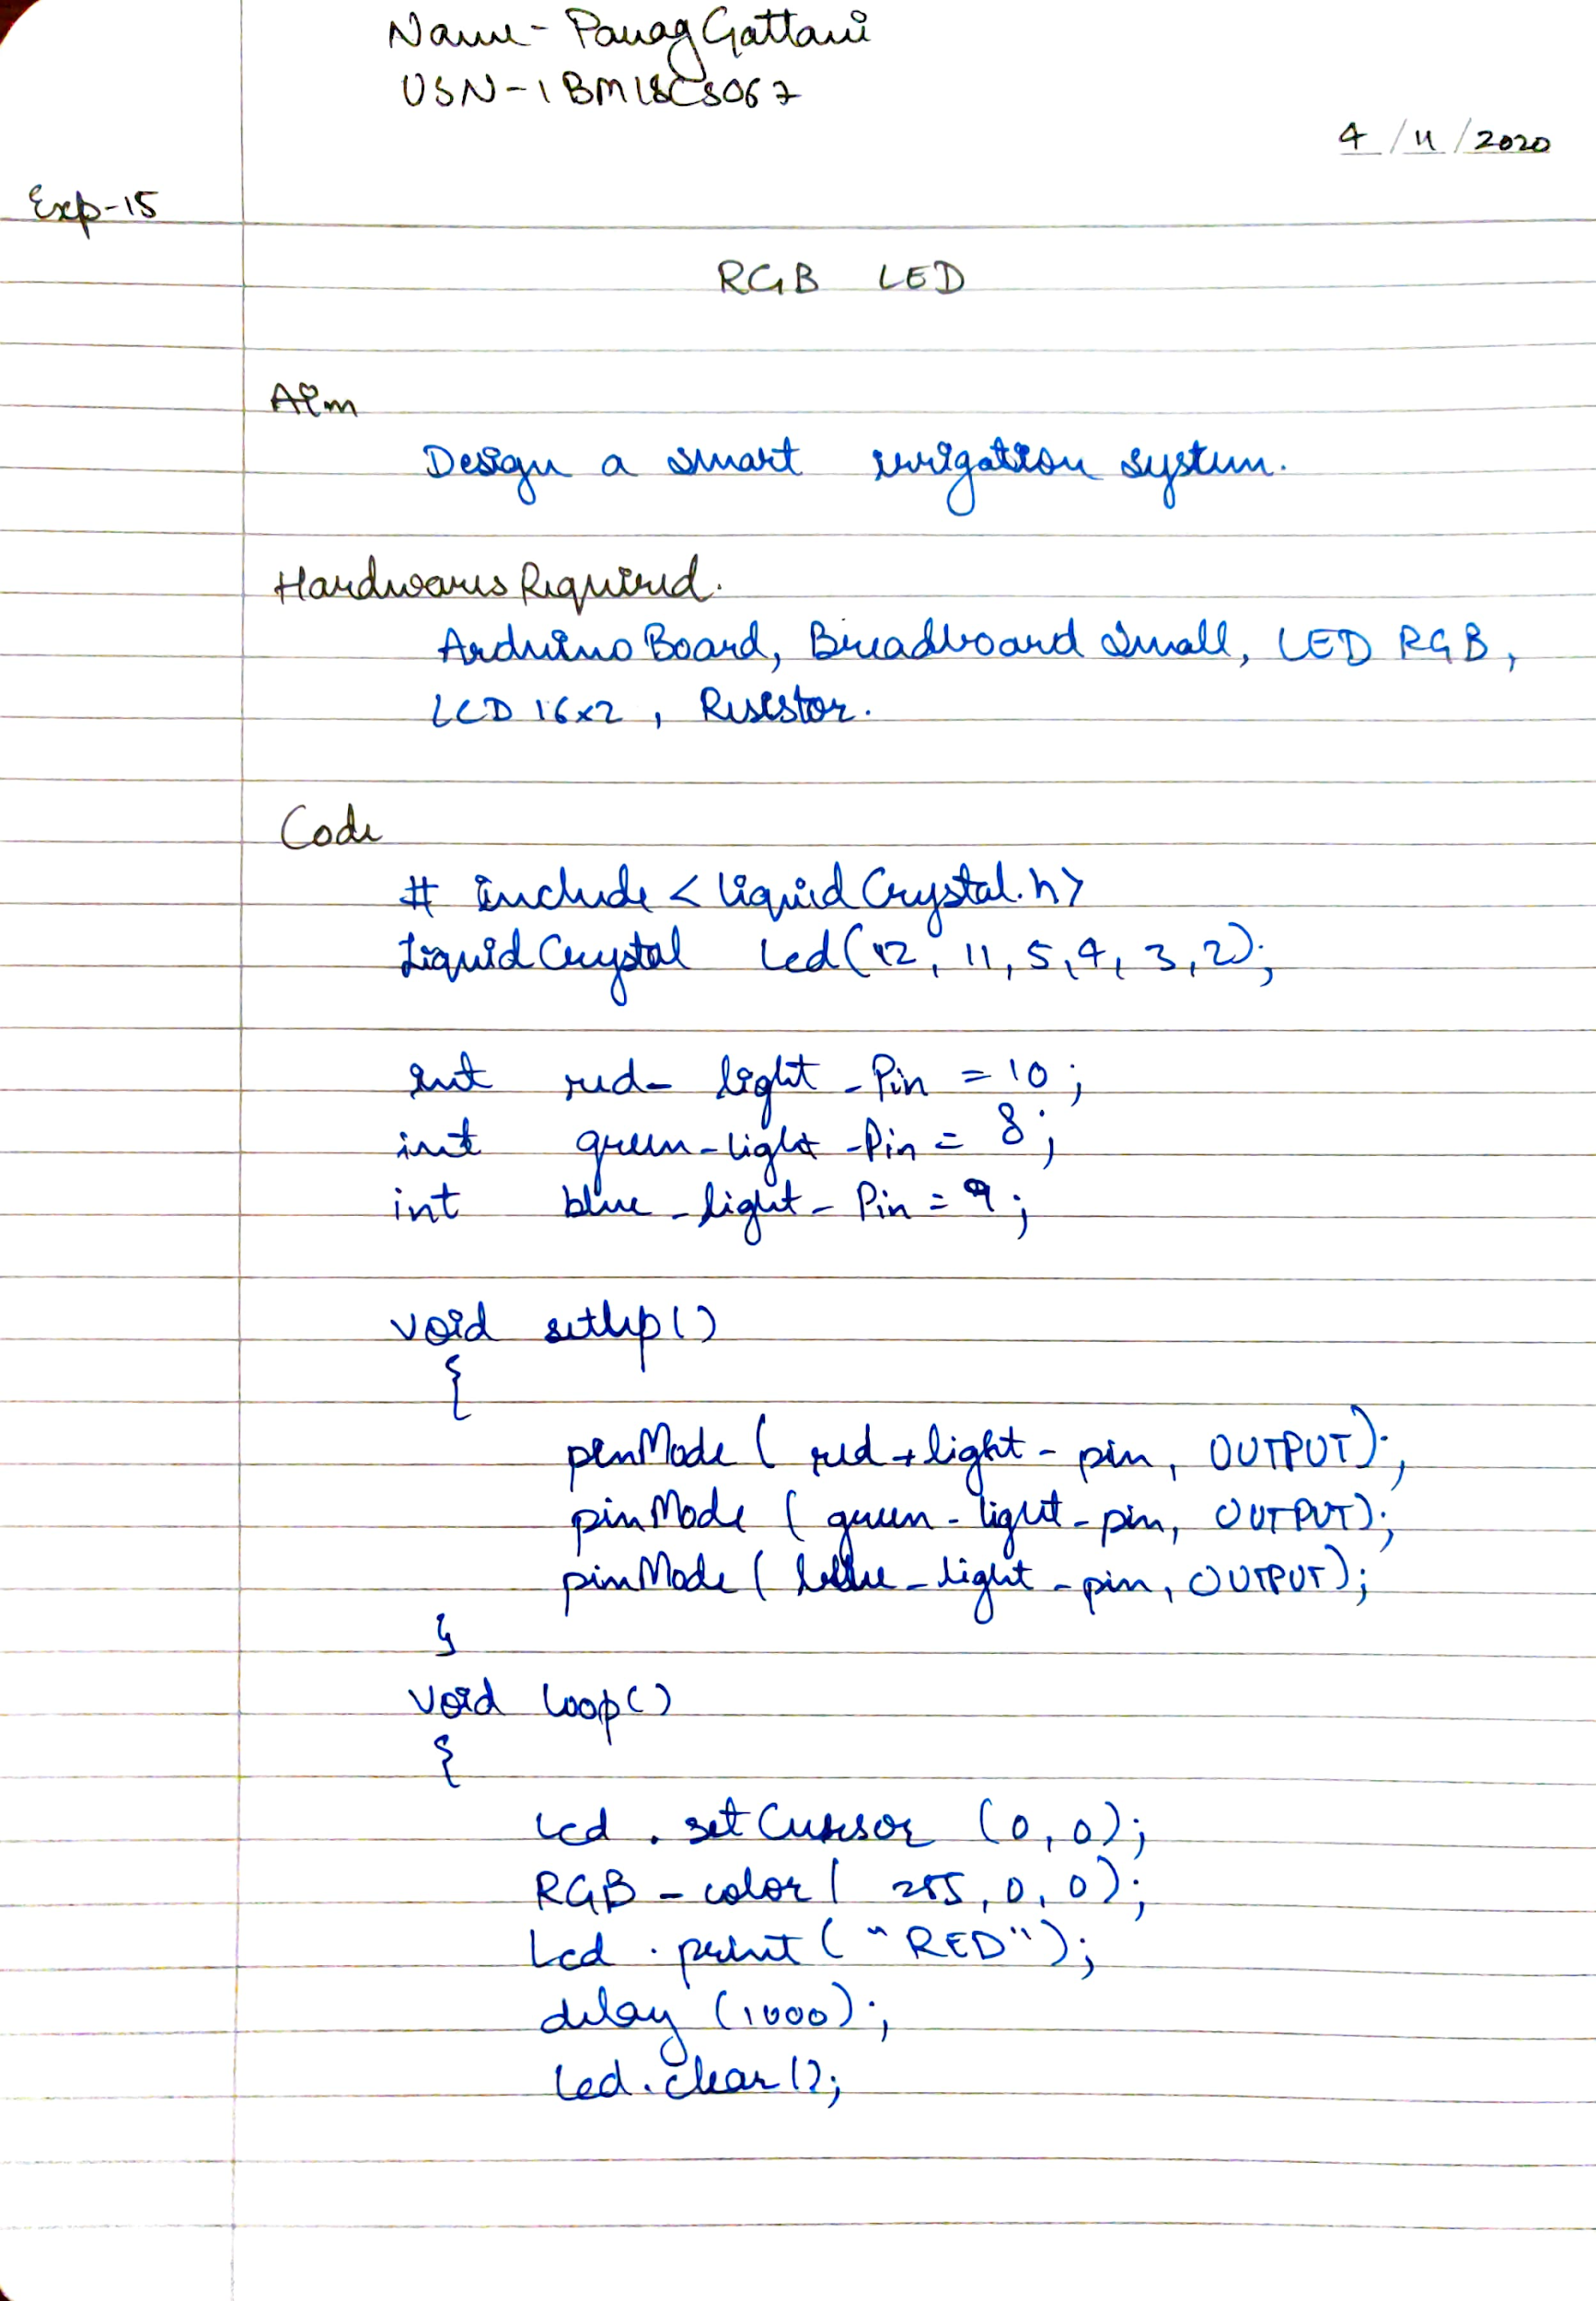 Name - Parag Gattani
USN - 1BM18CS067
4 / 11 / 2020
Exp-15
RGB LED
Aim
Design a smart irrigation system.
Hardwares Required.
Arduino Board, Breadboard Small, LED RGB,
LCD 16x2, Resistor.
Code
# include < liquid Crystal.h>
Liquid Crystal lcd(12, 11, 5, 4, 3, 2);
int red_light_Pin = 10;
int green_light_Pin = 8;
int blue_light_Pin = 9;
void setup()
{
pinMode ( red_light_pin, OUTPUT);
pinMode ( green_light_pin, OUTPUT);
pinMode ( blue_light_pin, OUTPUT);
}
void loop()
{
lcd . setCursor (0, 0);
RGB_color( 255, 0, 0);
Lcd . print ( "RED");
delay (1000);
lcd.clear();